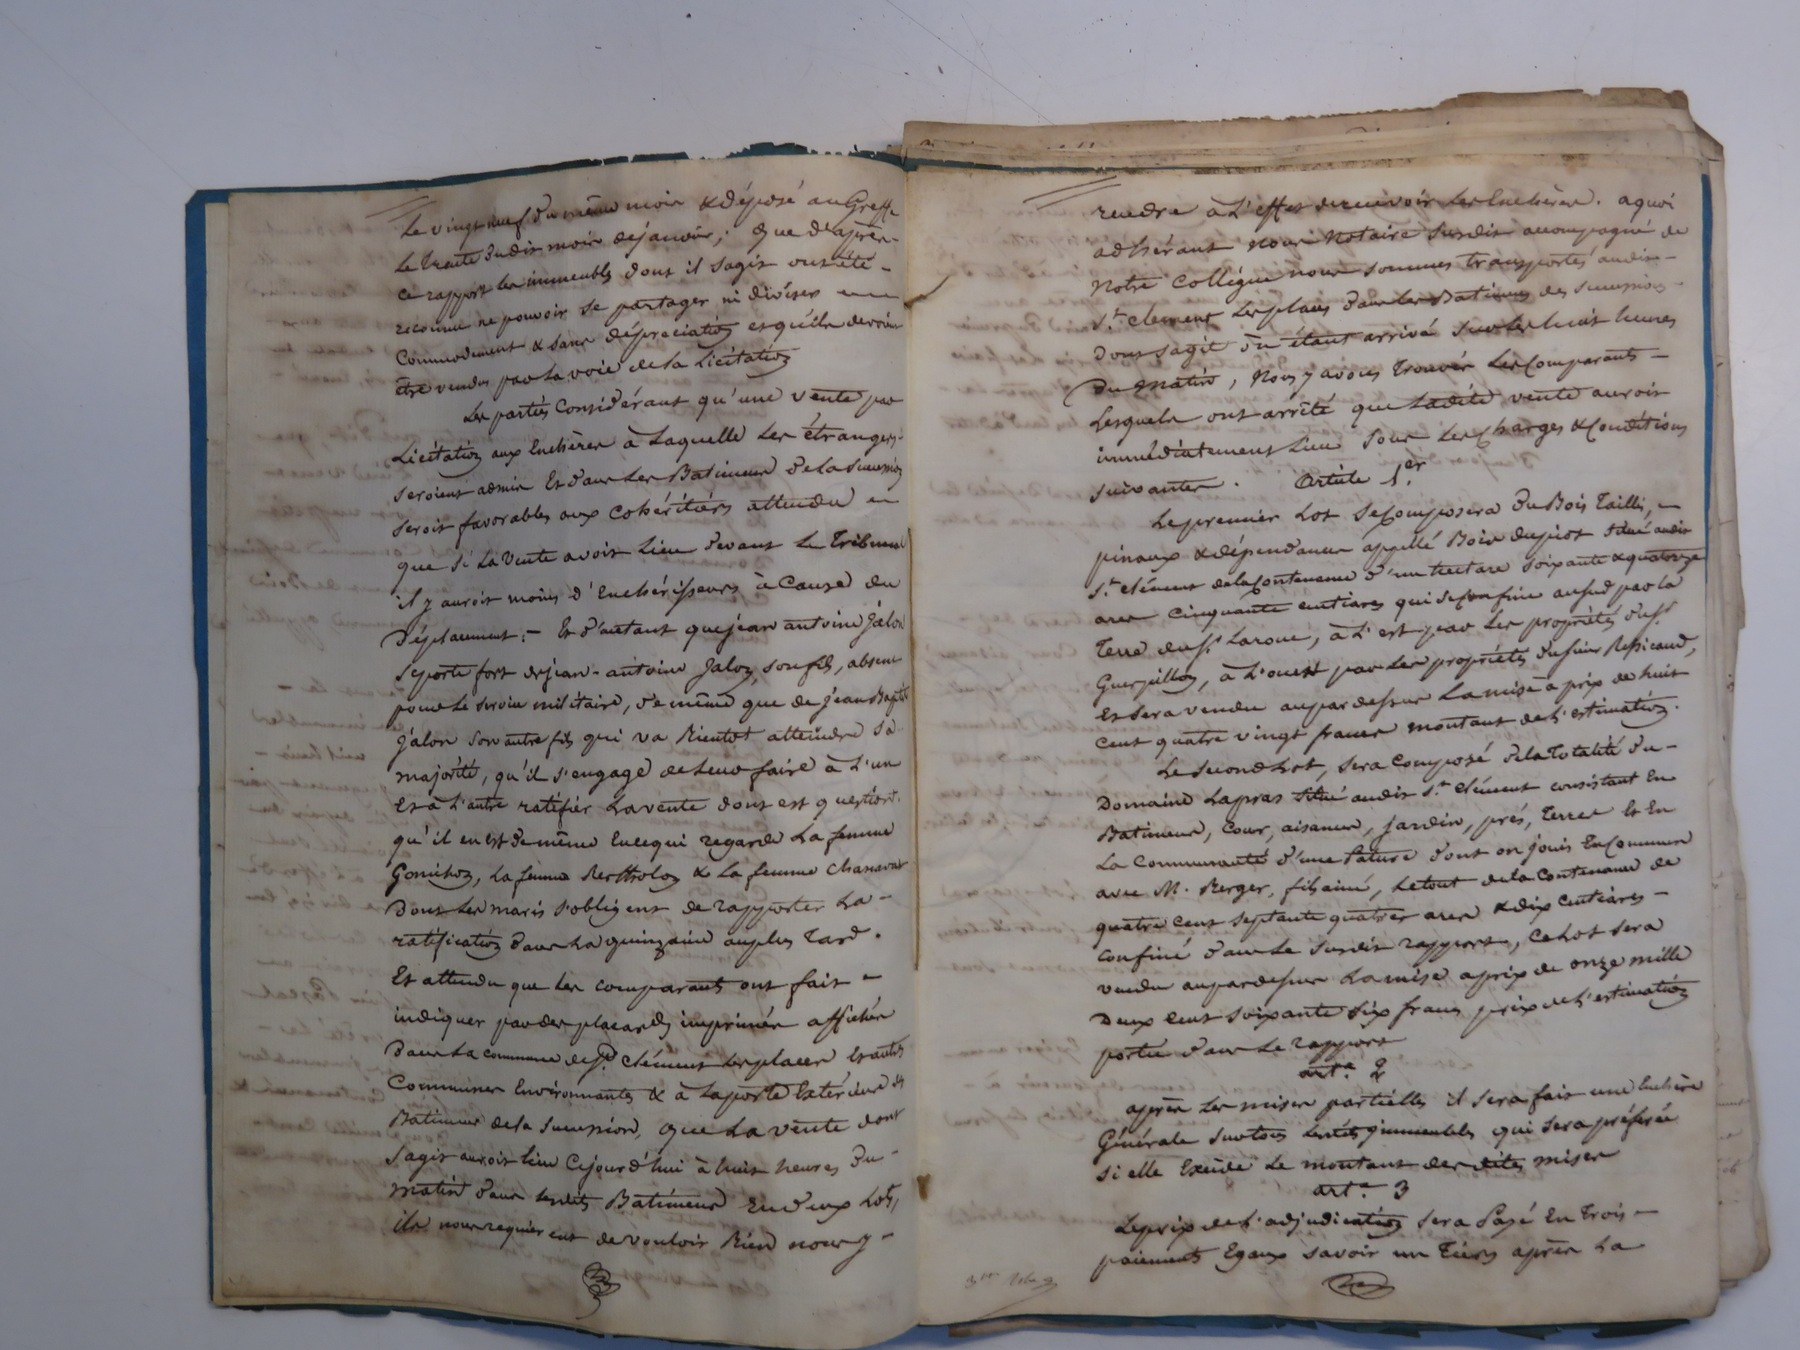 Le vingt neuf du même mois & déposé au Greffe
le trente dudit mois de janvier; que d'après
ce rapport les immeubles dont il sagit ont été
reconnu ne pouvoir se partager ni diviser
Commodement & sans dépreciation et qu'ils devoient
être vendus par la voie de la Licitation
Les parties Considérant qu'une vente par
Licitation aux Enchères à Laquelle les étrangers
seroient admis Et dans les Batiments de la succession
seroit favorables aux cohéritiers attendu
que si la vente avoit Lieu devant le Tribunal
il y auroit moins d'Enchérisseurs à Cause du
Déplacement: Et d'autant que jean antoine Jalon
se porte fort de jean-antoine Jalon, son fils, absent
pour le service militaire, de même que de jean Baptiste
Jalon son autre fils qui va Bientot atteindre sa
majorité, qu'il s'engage de leur faire à L'un
Et à L'autre ratifier La vente dont est question.
qu'il en est de même En ce qui regarde La femme
La femme Bertholon & La femme
Dont Les maris s'obligent de rapporter La
ratification dans La quinzaine au plus Tard.
Et attendu que Les comparants ont fait
indiquer par des placards imprimés affichés
Dans La commune de St. Clément Les places Et autres
Communes Environnantes & à La porte Extérieure des
Batiments de la Succession, que La vente dont
s'agit auroit lieu Cejourd'hui à huit heures Du
matin dans lesdits Batiments En deux Lots,
ils nous requierent de vouloir Bien nous y
rendre à L'effet de recevoir Les Enchères. a quoi
adhérant nous Notaire Susdit accompagné de
Notre Collègue nous sommes transportés audit
St. Clément Les places dans Les Batiments des successions
Dont sagit où étant arrivé sur les huit heures
Du matin, Nous y avons trouvés Les Comparants
Lesquels ont arrêté que Ladite vente auroit
immédiatement Lieu sous Les Charges & Conditions
suivantes. Article 1.er
Le premier Lot se Composera du Bois Taillis,
pinaux & dépendances appellé Bois situé audit
St. Clément de la Contenance d'un hectare soixante & quatorze
ares Cinquante centiares qui se Confine au sud par la
Terre du Sr. Laroue, à L'est par les propriétés du Sr.
à L'ouest par Les propriétés du sieur
Et sera vendu au par dessus La mise à prix de huit
cent quatre vingt francs montant de L'estimation.
Le Second Lot, sera Composé de la Totalité du
Domaine Lapras situé audit St. Clément consistant En
Batiments, Cour, aisances, Jardin, prés, Terres Et En
La Communauté d'une Pature dont on jouis En Commun
avec M. Berger, fils ainé, Le tout de la Contenance de
quatre cent septante quatre ares & dix Centiares
Confiné dans Le susdit rapport, Ce Lot sera
vendu au par dessus La mise à prix de onze mille
Deux cent soixante six francs prix de L'estimation
portée dans Le rapport
art.e 2
après Les mises partielles il sera fait une Enchère
Générale sur tous Lesdits immeubles qui sera préférée
si elle Excède Le montant des dites mises
art.e 3
Le prix de L'adjudication sera Payé En Trois
paiements Egaux savoir un Tiers après La